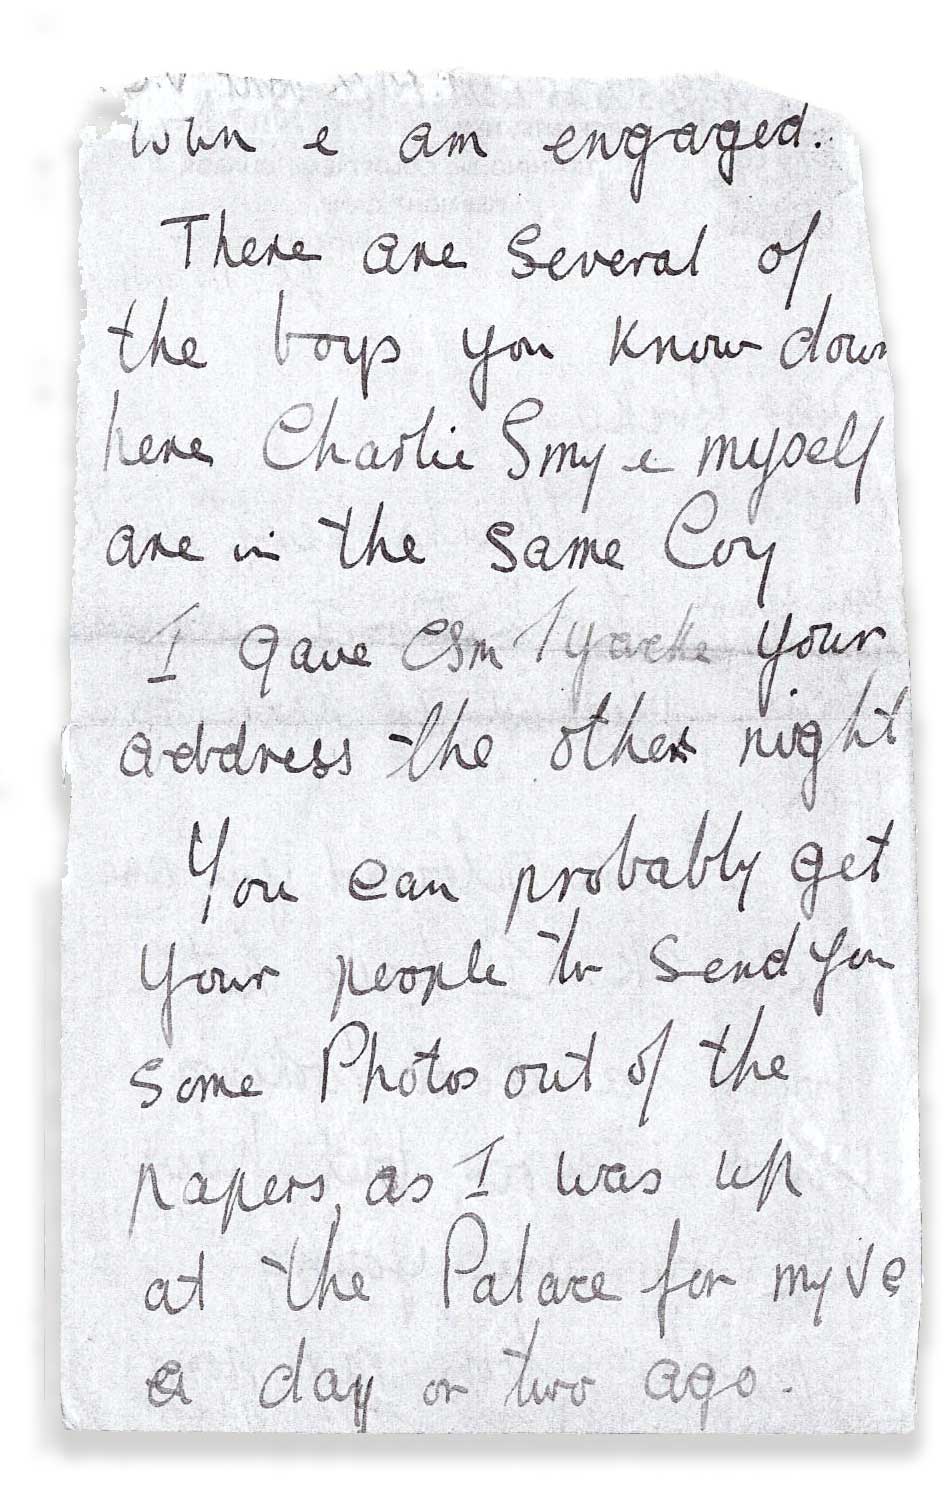 town & am engaged.
There are several of
the boys you know down
here Charlie Smy & myself
are in the same Coy
I gave CSM your
address the other night
You can probably get
your people to send you
some Photos out of the
papers, as I was up
at the Palace for my VC
a day or two ago.